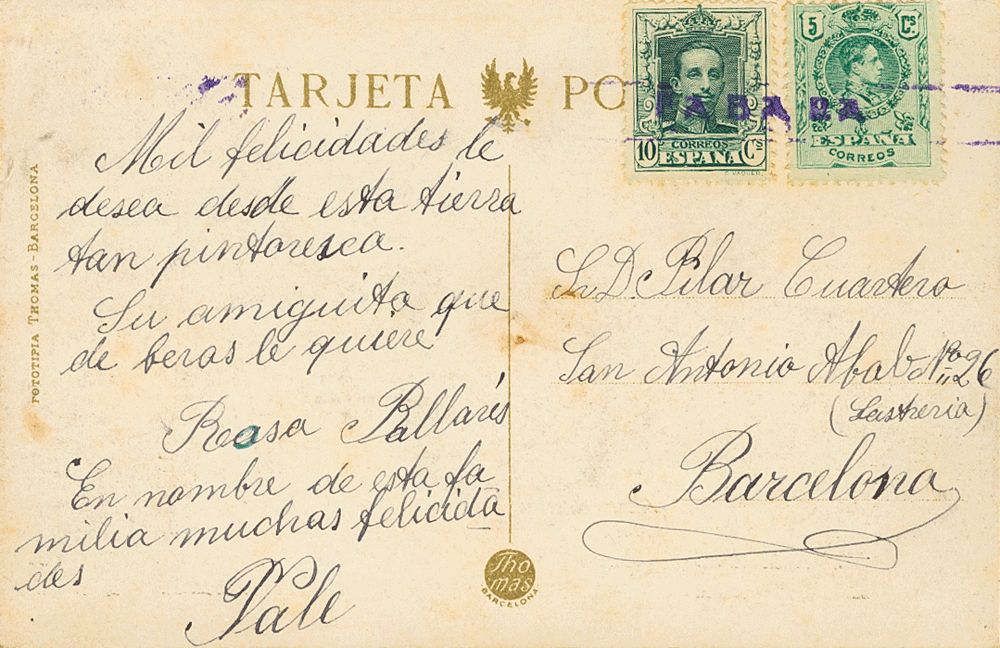 TARJETA PO
Mil felicidades le
desea desde esta tierra
tan pintoresca.
Su amiguita que
de beras le quiere
Rosa Pallarés
En nombre de esta fa
milia muchas felicida
des
Vale
FOTOTIPIA THOMAS - BARCELONA
Thomas
BARCELONA
10 CORREOS Cs
ESPAÑA
5 Cs
ESPAÑA
CORREOS
Sr D. Pilar Cuartero
San Antonio Abab Nº 26
(Sastreria)
Barcelona